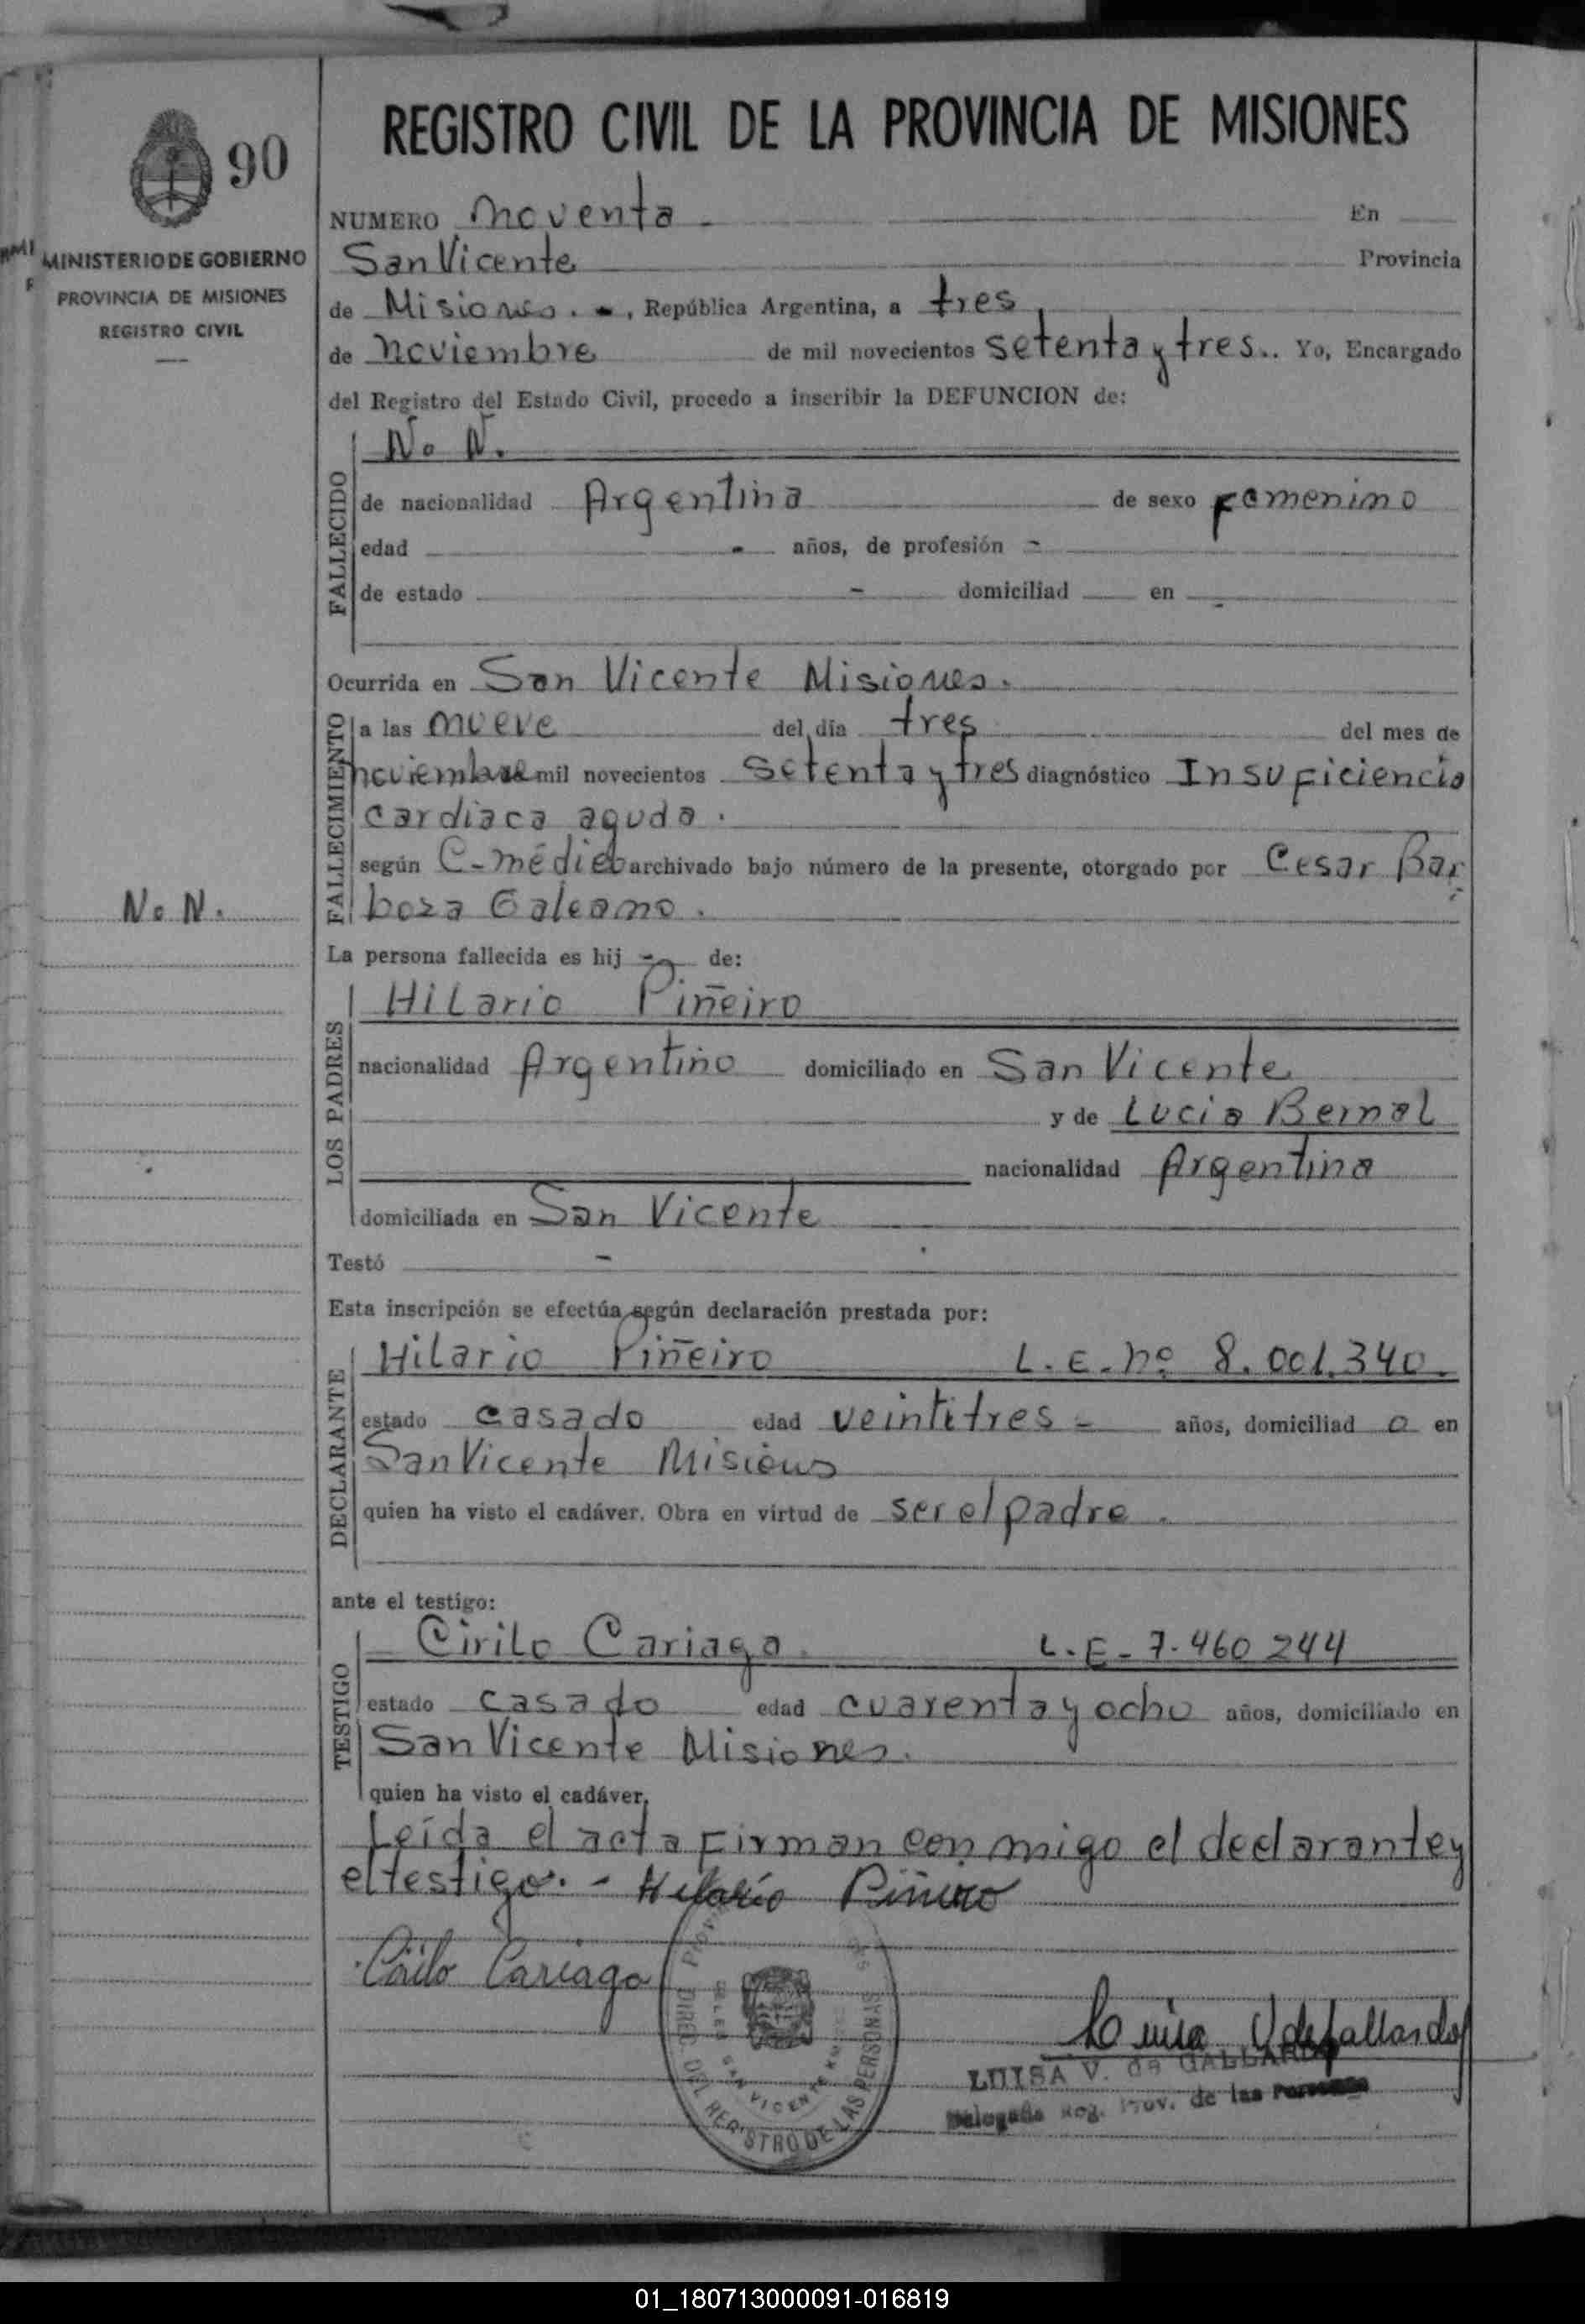 90
MINISTERIO DE GOBIERNO
PROVINCIA DE MISIONES
REGISTRO CIVIL
N. N.
REGISTRO CIVIL DE LA PROVINCIA DE MISIONES
NUMERO noventa. En
San Vicente Provincia
de Misiones. -, República Argentina, a tres
de noviembre de mil novecientos setenta y tres.. Yo, Encargado
del Registro del Estado Civil, procedo a inscribir la DEFUNCION de:
FALLECIDO
N. N.
de nacionalidad Argentina de sexo femenino
edad - años, de profesión -
de estado - domiciliad en -
Ocurrida en San Vicente Misiones.
FALLECIMIENTO
a las nueve del día tres del mes de
noviembre mil novecientos setenta y tres diagnóstico Insuficiencia
cardiaca aguda.
según C-médico archivado bajo número de la presente, otorgado por Cesar Bar
boza Galeano.
La persona fallecida es hij a de:
LOS PADRES
Hilario Piñeiro
nacionalidad Argentino domiciliado en San Vicente
y de Lucia Bernal
nacionalidad Argentina
domiciliada en San Vicente
Testó -
Esta inscripción se efectúa según declaración prestada por:
DECLARANTE
Hilario Piñeiro L.E. nº 8.001.340.
estado casado edad veintitres - años, domiciliad o en
San Vicente Misiones
quien ha visto el cadáver. Obra en virtud de ser el padre.
ante el testigo:
TESTIGO
Cirilo Cariaga L.E- 7.460 244
estado casado edad cuarenta y ocho años, domiciliado en
San Vicente Misiones.
quien ha visto el cadáver.
Leída el acta firman con migo el declarante y
el testigo. - Hilario Piñeiro
Cirilo Cariaga
DIREC. DEL REGISTRO DE LAS PERSONAS
SAN VICENTE
Luisa V de Gallardo
LUISA V. de GALLARDO
Delegada Reg. Prov. de las Personas
01_180713000091-016819